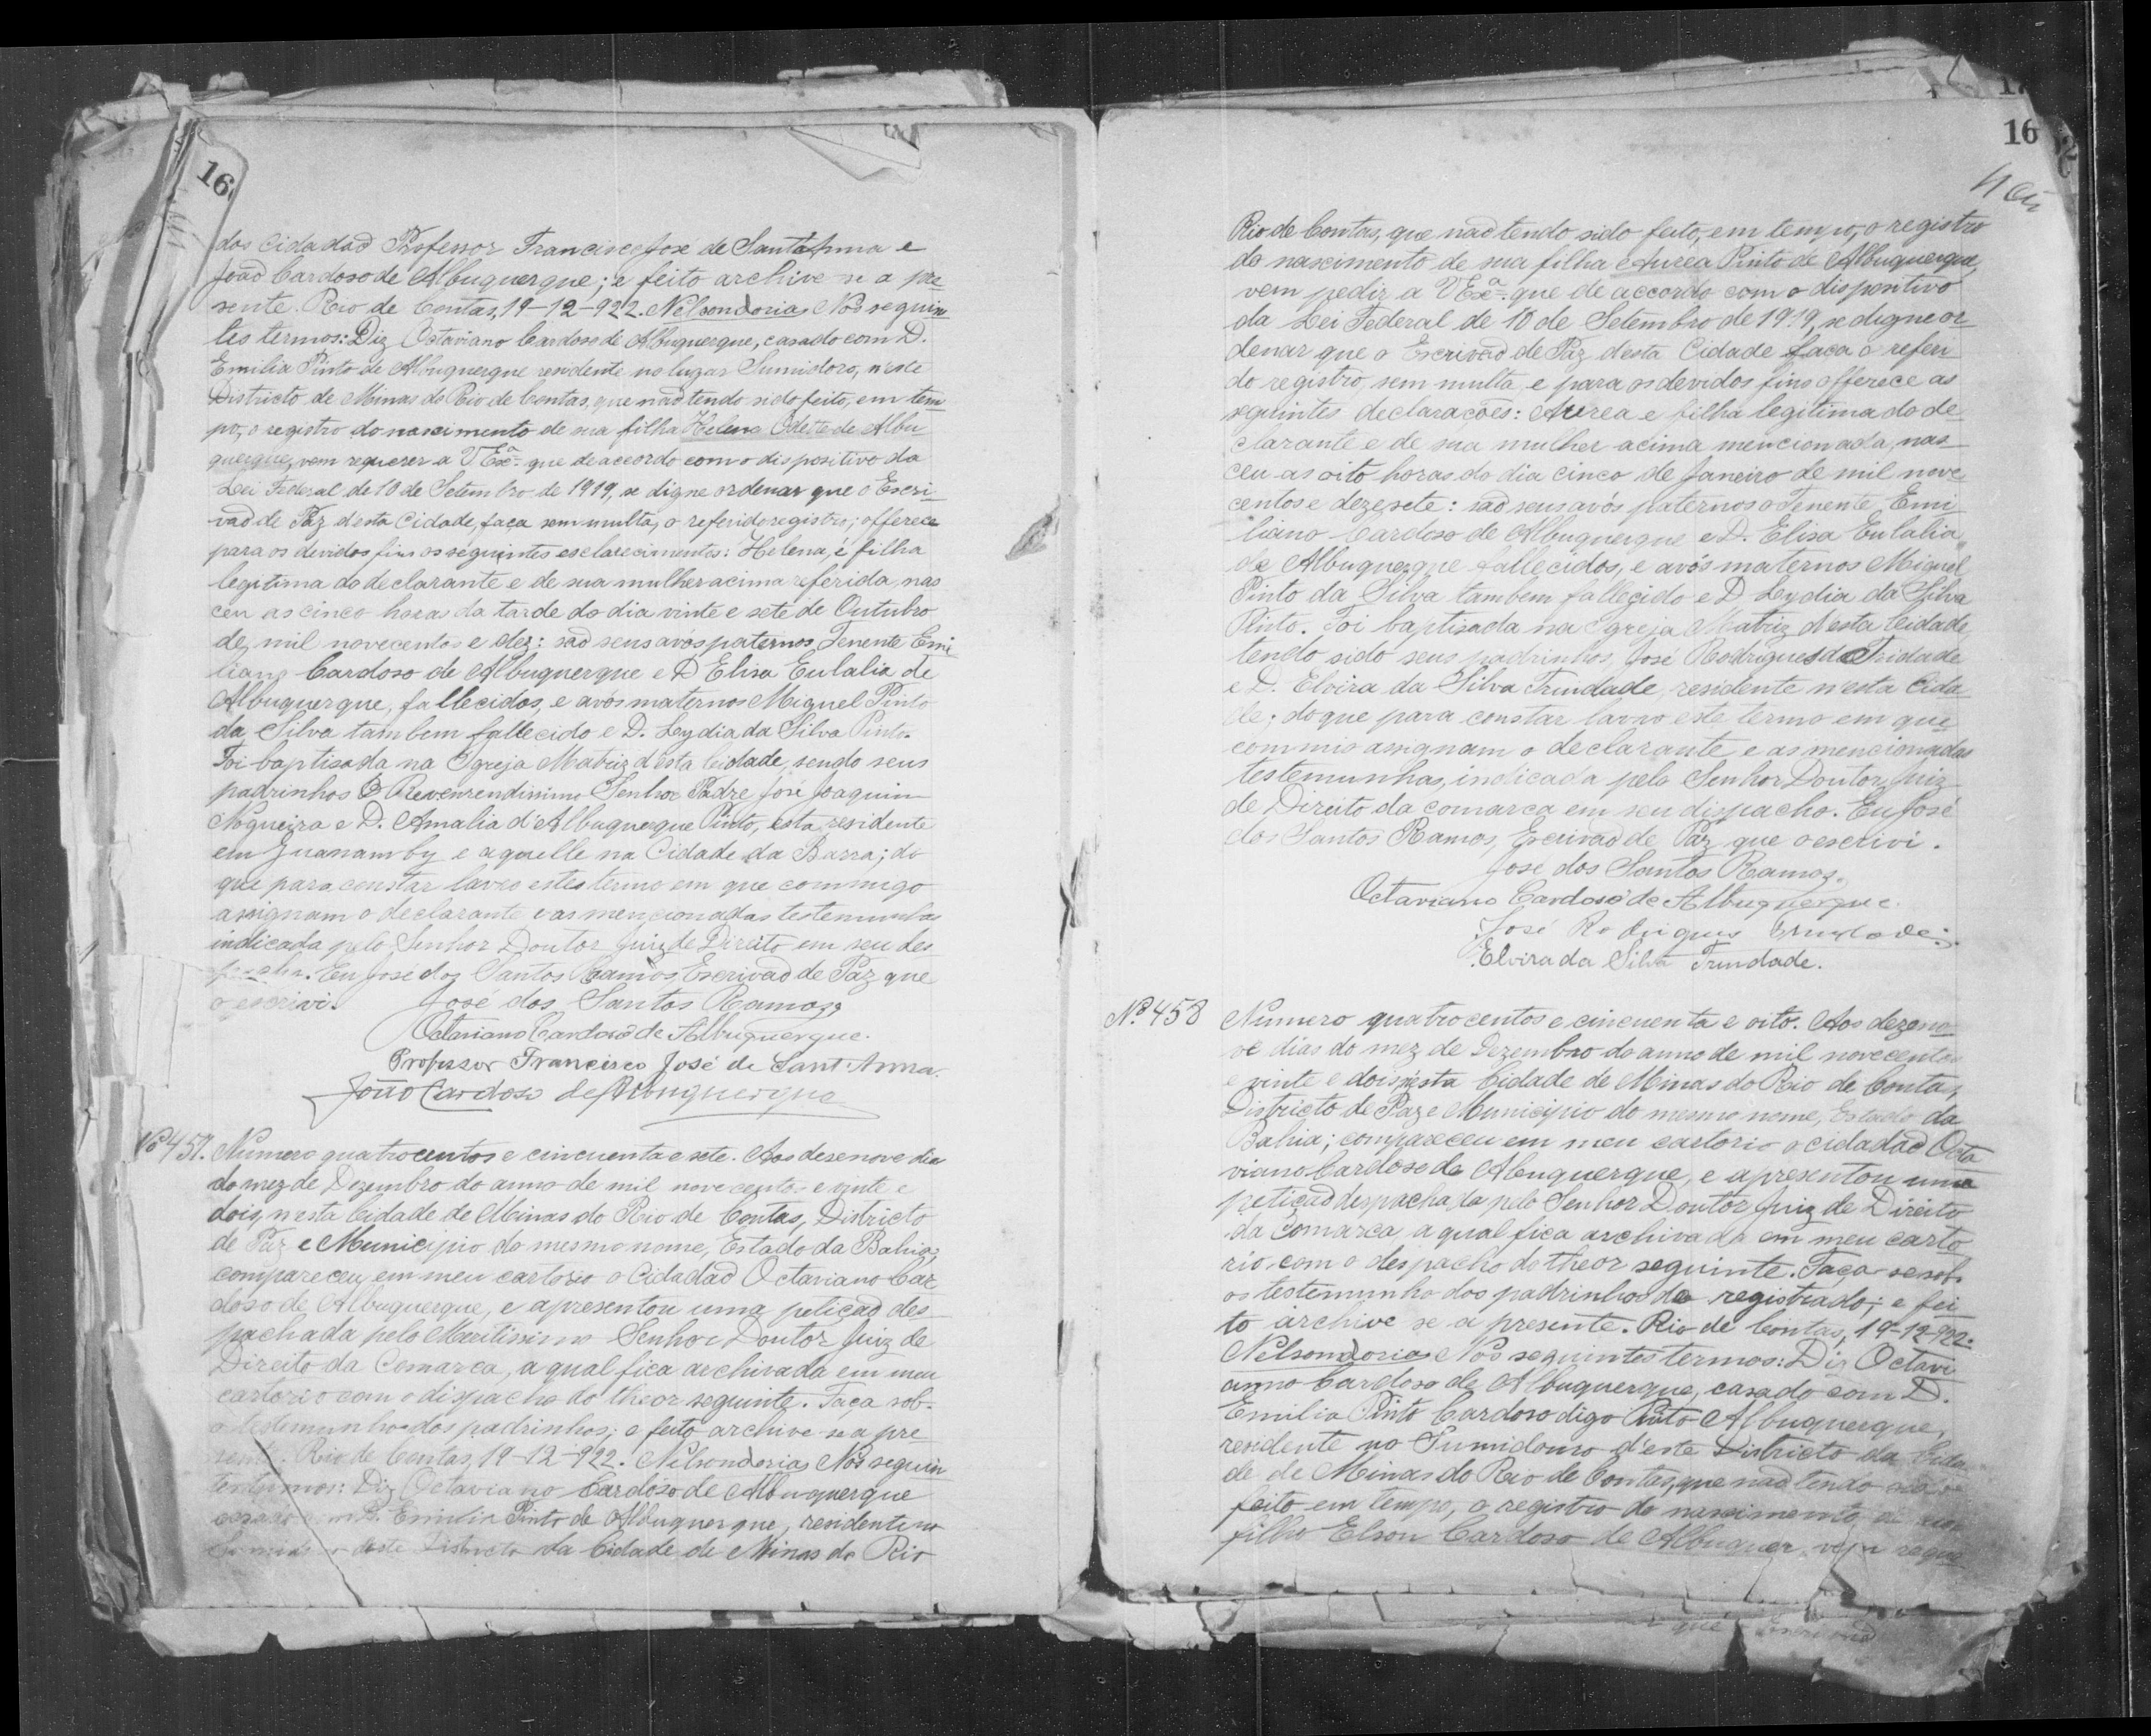 16
dos Cidadaõ Professor Francisco Jose de Santa'Anna e
João Cardoso de Albuquerque; e feito archive-se a pre
sente. Rio de Contas, 19-12-922. Nelsondorias Nos seguin
tes termos: Diz Octaviano Cardoso de Albuquerque, casado com D.
Emilia Pinto de Albuquerque residente no lugar Sumidoro, n'este
Districto de Minas do Rio de Contas, que naõ tendo sido feito, em tem
po, o registro do nascimento de sua filha Helena Odette de Albu
querque, vem requerer a V Exª. que de accordo com o dispositivo da
Lei Federal de 10 de Setembro de 1919, se digne ordenar que o Escri
vaõ de Paz d'esta Cidade, faça sem multa, o referido registro; offerece
para os devidos fins os seguintes esclarecimentos: Helena, é filha
legitima do declarante e de sua mulher acima referida, nas
ceu as cinco horas da tarde do dia vinte e sete de Outubro
de mil novecentos e dez: saõ seus avós paternos Tenente Emi
liano Cardoso de Albuquerque e D Elisa Eulalia de
Albuquerque, fallecidos, e avós maternos Miguel Pinto
da Silva tambem fallecido e D. Lydia da Silva Pinto.
Foi baptisada na Igreja Matriz d'esta Cidade, sendo seus
padrinhos O Reverendissimo Senhor Padre José Joaquim
Nogueira e D. Amalia d'Albuquerque Pinto, esta residente
em Guanamby e aquelle na Cidade da Barra; do
que para constar lavro estes termo em que commigo
assignam o declarante e as mencionadas testemunhas
indicada pelo Senhor Doutor Juiz de Direito em seu des
pacho. Eu José dos Santos Ramos, Escrivaõ de Paz que
o escrivi. José dos Santos Ramos.
Octaviano Cardoso de Albuquerque.
Professor Francisco José de Sant'Anna.
João Cardoso de Albuquerque
Nº 457. Numero quatrocentos e cincuenta e sete. Aos desenove dia
do mez de Dezembro do anno de mil novecentos e vinte e
dois, nesta Cidade de Minas do Rio de Contas, Districto
de Paz e Municipio do mesmo nome, Estado da Bahia;
compareceu em meu cartorio o Cidadaõ Octaviano Car
doso de Albuquerque, e apresentou uma petiçaõ des
pachada pelo Meritissimo Senhor Doutor Juiz de
Direito da Comarca, a qual fica archivada em meu
cartorio com o dispacho do theor seguinte. Faça sob-
o testemunho dos padrinhos; e feito archive-se a pre
sente. Rio de Contas, 19-12-922. Nelsondorias Nos seguin
tes termos: Diz Octaviano Cardoso de Albuquerque
casado com D. Emilia Pinto de Albuquerque, residente no
Sumidoro deste Districto da Cidade de Minas do Rio
16
Rio de Contas, que naõ tendo sido feito, em tempo, o registro
do nascimento de sua filha Aurea Pinto de Albuquerque,
vem pedir a V Exª. que de accordo com o dispositivo
da Lei Federal de 10 de Setembro de 1919, se digne or
denar que o Escrivaõ de Paz desta Cidade faça o referi
do registro, sem multa e para os devidos fins offerece as
seguintes declarações: Aurea e filha legitima do de
clarante e de sua mulher acima mencionada, nas
ceu as oito horas do dia cinco de Janeiro de mil nove
centos e dezesete: saõ seus avós paternos o Tenente Emi
liano Cardoso de Albuquerque e D. Elisa Eulalia
de Albuquerque fallecidos, e avós maternos Miguel
Pinto da Silva tambem fallecido e D. Lydia da Silva
Pinto. Foi baptisada na Igreja Matriz d'esta Cidade,
tendo sido seus padrinhos, José Rodrigues da Tridade
e D. Elvira da Silva Trindade, residente n'esta Cida
de; do que para constar lavro este termo em que
commis assignam o declarante e as mencionadas
testemunhas, indicada pelo Senhor Doutor Juiz
de Direito da comarca em seu dispacho. Eu José
dos Santos Ramos, Escrivaõ de Paz que o escrivi.
José dos Santos Ramos.
Octaviano Cardoso de Albuquerque.
José Rodrigues Trindade.
Elvira da Silva Trindade.
Nº 458 Numero quatrocentos e cincuenta e oito. Aos dezeno
ve dias do mez de Dezembro do anno de mil novecentos
e vinte e dois, n'esta Cidade de Minas do Rio de Contas,
Districto de Paz e Municipio do mesmo nome, Estado da
Bahia; compareceu em meu cartorio o cidadaõ Octa
viano Cardoso de Albuquerque, e apresentou uma
petiçaõ despachada pelo Senhor Doutor Juiz de Direito
da Comarca, a qual fica archivada em meu carto
rio, com o despacho do theor seguinte. Faça-se sob-
os testemunho dos padrinhos do registrado; e fei
to archive se a presente. Rio de Contas, 19-12-922.
Nelsondorias Nos seguintes termos: Diz Octavi
anno Cardoso de Albuquerque, casado com D.
Emilia Pinto Cardoso digo Pinto Albuquerque,
residente no Sumidouro d'este Districto da Cida
de de Minas do Rio de Contas, que naõ tendo sido
feito em tempo, o registro do nascimento de seu
filho Elson Cardoso de Albuquer vem reque